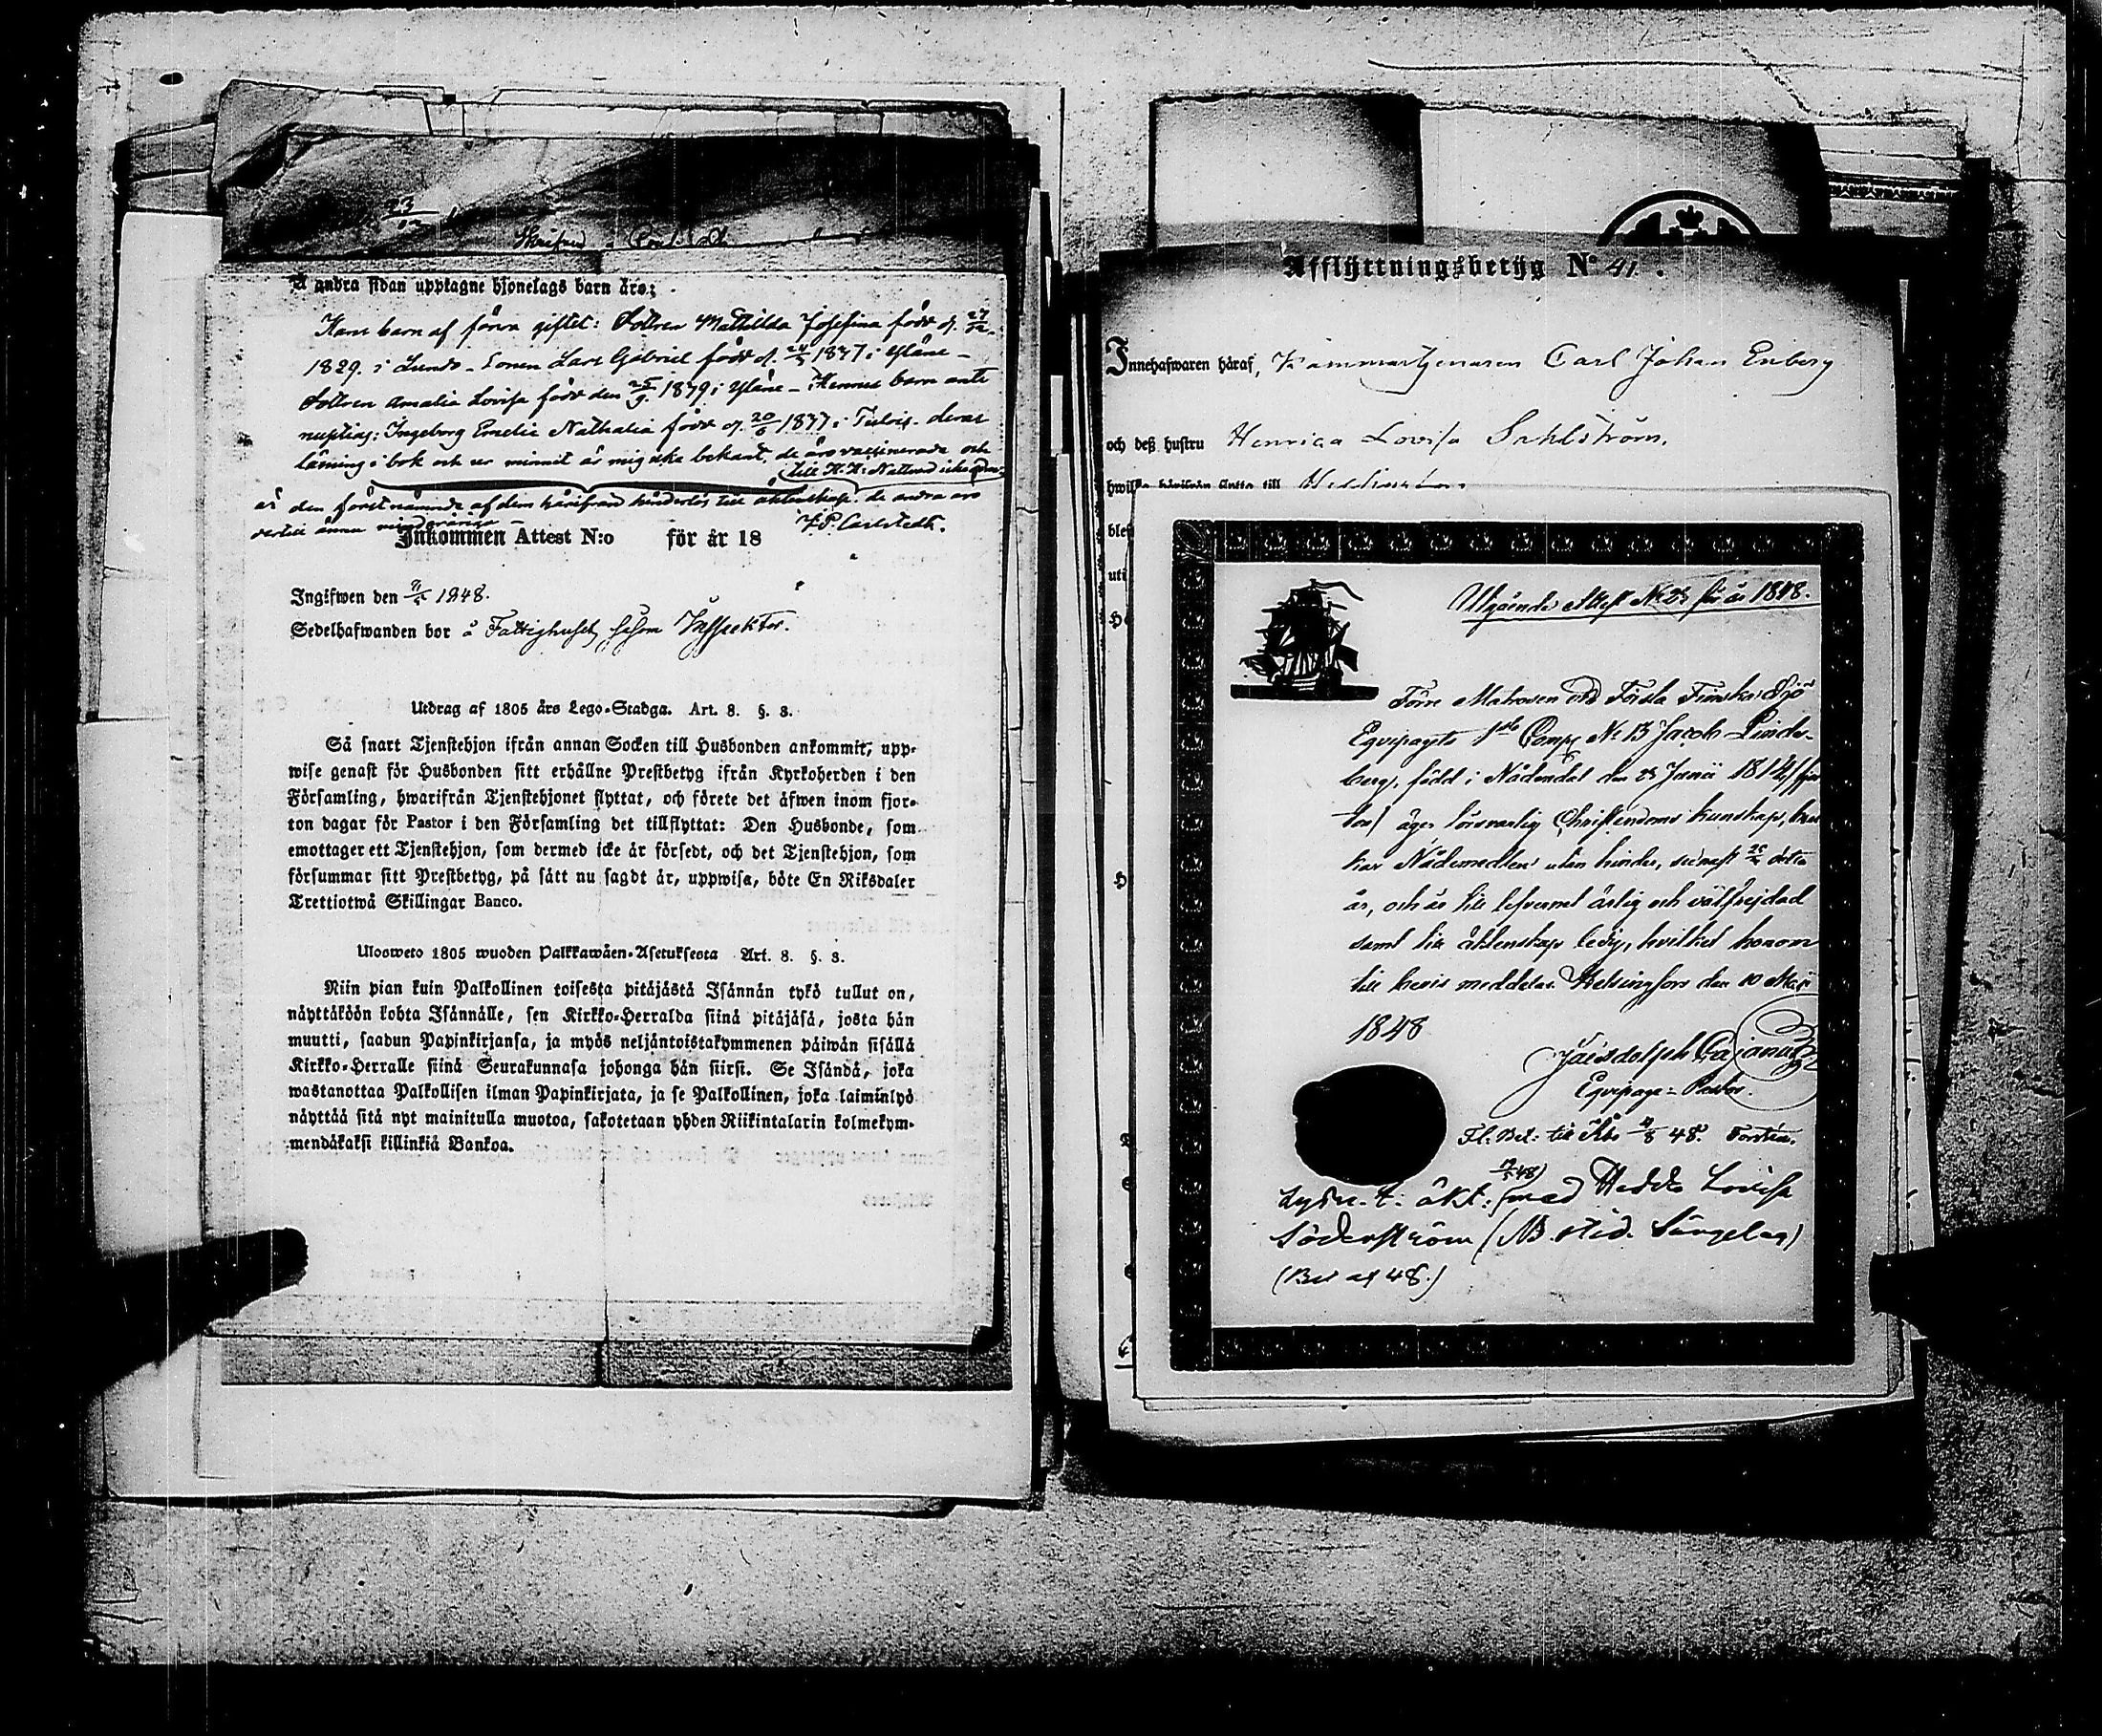 23
Å andra sidan upptagne hjonelags barn äro;
Hans barn af förra giftet: Dottren Mathilda Josefina född d.
1829. i Lundo - Sonen Lars Gabriel född d. 24/5 1837 i Yläne -
Dottren Amalia Lovisa född den 25/9 1839 i Yläne - Hennes barn ante
nuptias: Ingeborg Emelie Nathalia född d. 20/6 1837 i deras
läsning i bok och ur minnet är mig icke bekant, de äro vaccinerade och
till H. H. Nattvard icke
är den förstnämnde af dem härifrån hinderlös till äktenskap. de andra äro
dertill ännu minderåriga -
J. P. Carlstedt.
Inkommen Attest N:o för år 18
Ingifwen den 1848.
Sedelhafwanden bor å Fattighuset såsom Inspektor.
Utdrag af 1805 års Lego-Stadga. Art. 8. §. 3.
Så snart Tjenstehjon ifrån annan Socken till Husbonden ankommit, upp-
wise genast för Husbonden sitt erhållne Prestbetyg ifrån Kyrkoherden i den
Församling, hwarifrån Tjenstehjonet flyttat, och förete det äfwen inom fjor-
ton dagar för Pastor i den Församling det tillflyttat: Den Husbonde, som
emottager ett Tjenstehjon, som dermed icke är försedt, och det Tjenstehjon, som
försummar sitt Prestbetyg, på sätt nu sagdt är, uppwisa, böte En Riksdaler
Trettiotwå Skillingar Banco.
Ulosweto 1805 wuoden Palkkawäen-Asetuksesta Art. 8. §. 3.
Niin pian kuin Palkollinen toisesta pitäjästä Isännän tykö tullut on,
näyttäköön kohta Isännälle, sen Kirkko-Herralda siinä pitäjäsä, josta hän
muutti, saadun Papinkirjansa, ja myös neljäntoistakymmenen päiwän sisällä
Kirkko-Herralle siinä Seurakunnasa johonga hän siirsi. Se Isändä, joka
wastanottaa Palkollisen ilman Papinkirjata, ja se Palkollinen, joka laiminlyö
näyttää sitä nyt mainitulla muotoa, sakotetaan yhden Riikintalarin kolmekym-
mendäkaksi killinkiä Bankoa.
Afflyttningsbetyg No 41.
Innehafwaren häraf, Kammartjenaren Carl Johan Enberg
och dess hustru Henrica Lovisa Sahlström,
hwilka härifrån flytta till
Utgående Attest No 23 för år 1848.
Förre Matrosen vid Första Finska Sjö
Equipagets 1sta Comp. No 13 Jacob Linde-
berg, född i Nådendal den 23 Junii 1814 (fjor
ton) äger försvarlig Christendoms kunskap, bru
kar Nådemedlen utan hinder, senast detta
år, och är till lefvernet ärlig och välfrejdad
samt till äktenskap ledig, hvilket honom
till bevis meddelas. Helsingfors den 10 Maji
1848
Cajanus
Equipage-Pastor.
Fl. Bet. till Åbo 48.
Lysn. t. äkt. med Hedda Lovisa
Söderström
(Bet af 48.)